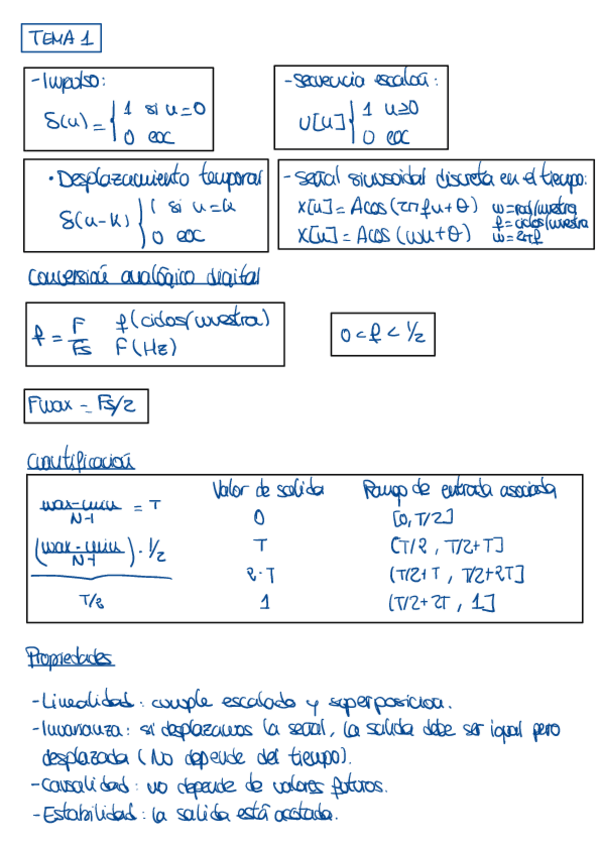 TEMA 1
- Impulso:
δ(n) = { 1 si n=0
0 eoc
- secuencia escalón:
U[n] { 1 n≥0
0 eoc
• Desplazamiento temporal
δ(n-k) { 1 si n=k
0 eoc
- señal sinusoidal discreta en el tiempo:
x[n] = A cos (2πfn+θ) w=rad/muestra
f=ciclos/muestra
x[n] = A cos (wn+θ) w=2πf
conversión analógico digital
f = F/Fs f (ciclos/muestra)
F (Hz)
0 < f < 1/2
Fmax = Fs/2
cuantificación
Valor de salida Rango de entrada asociada
max-min/N-1 = T 0 [0, T/2]
(max-min/N-1) · 1/2 T (T/2, T/2+T]
2·T (T/2+T, T/2+2T]
T/2 1 (T/2+2T, 1]
Propiedades
- Linealidad: cumple escalado y superposición.
- Invarianza: si desplazamos la señal, la salida debe ser igual pero
desplazada (No depende del tiempo).
- causalidad: no depende de valores futuros.
- Estabilidad: la salida está acotada.